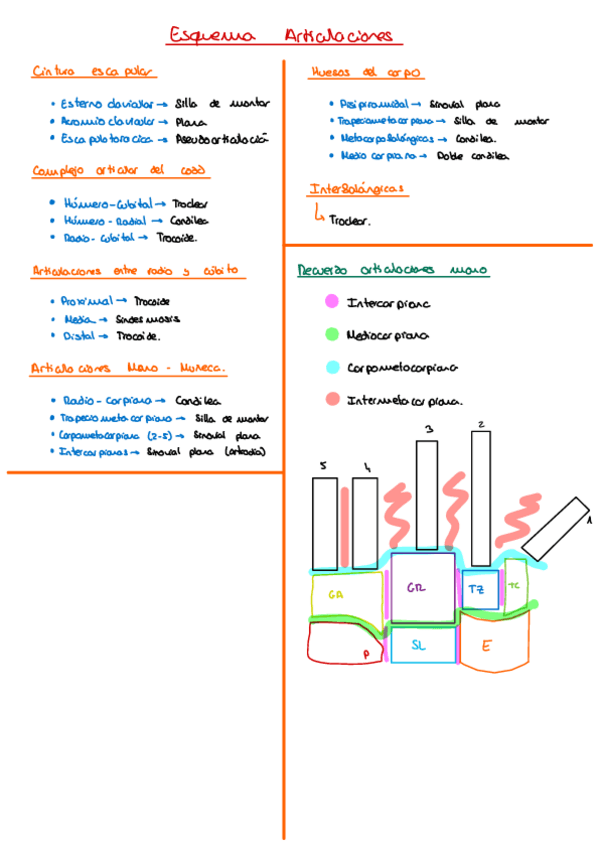 Esquema Articulaciones
Cintura escapular
• Esterno clavicular → Silla de montar
• Acromio clavicular → Plana
• Escapulotoracica → Pseudoarticulación
Complejo articular del codo
• Húmero-Cubital → Troclear
• Húmero-Radial → Condilea
• Radio-Cubital → Trocoide.
Articulaciones entre radio y cúbito
• Proximal → Trocoide
• Media → Sindesmosis
• Distal → Trocoide.
Articulaciones Mano - Muñeca.
• Radio-carpiana → Condilea
• Trapecio metacarpiana → Silla de montar
• Carpometacarpiana (2-5) → Sinovial plana
• Intercarpianas → Sinovial plana (artrodia)
Huesos del carpo
• Pisipiramidal → Sinovial plana
• Trapeciometacarpiana → Silla de montar
• Metacarpofalángicas → Condilea.
• Medio carpiana → Doble condilea
Interfalángicas
↳ Troclear.
Recuerdo articulaciones mano
Intercarpiana
Mediocarpiana
Carpometacarpiana
Intermetacarpiana.
5 4 3 2 1
GA GR TZ TC
P SL E